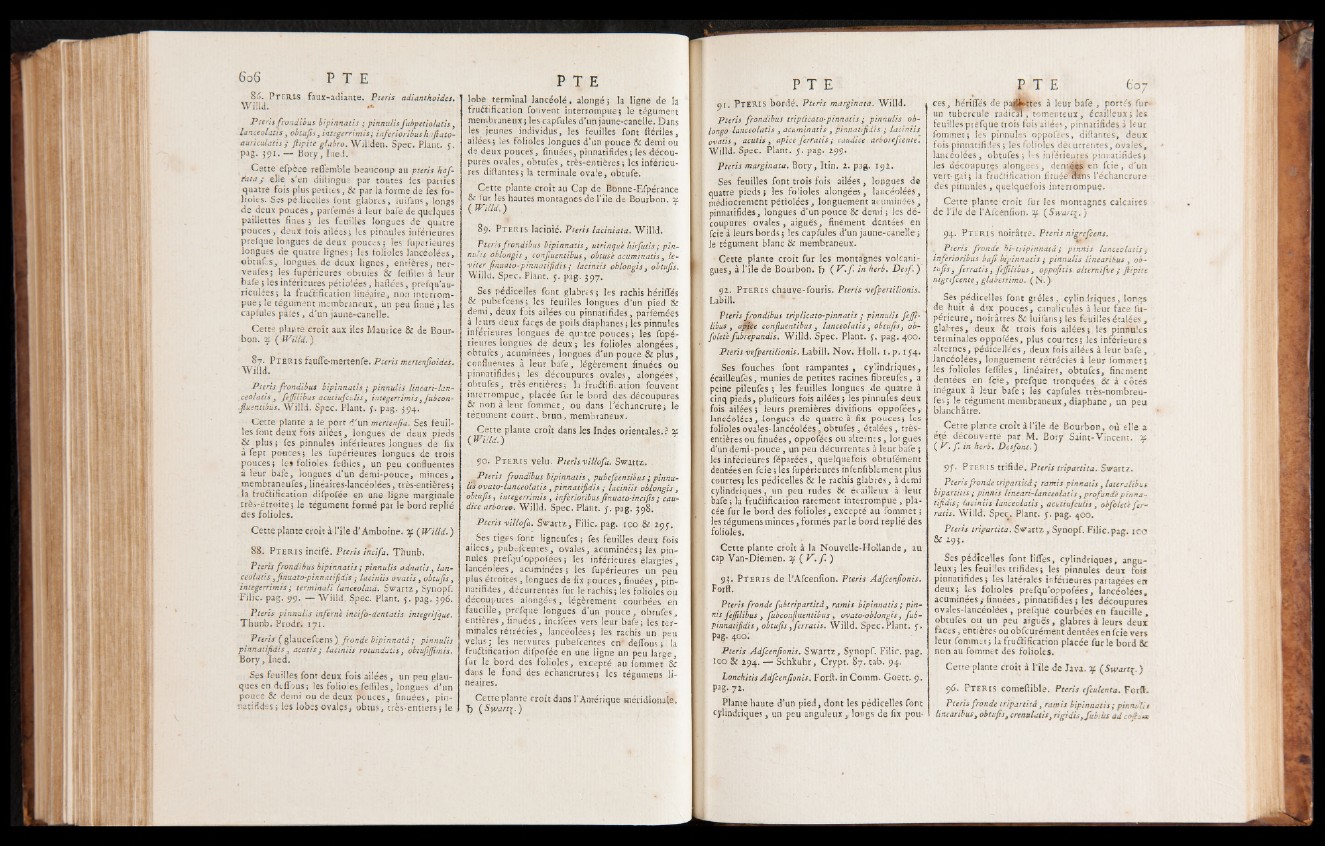 606 P T E
86. PTERIS faux-adiante. Pteris adianthoides.
Willd.
Pteris frondibus bipinnatis ; pinnulis subpetiolatis,
lanceolatis, obtusis, integerrimis; inferioribus hastato-
auriculatis ; stipite glabro. Willden. Spec. Plant. 5.
pag. 391. — Bory, Ined.
Cette espèce ressemble beaucoup au pteris has-
tata ; elle s'en distingue par toutes ses parties
quatre fois plus petites, & par la forme de ses fo-
lioles. Ses pédicelles sont glabres, luisans, longs
de deux pouces, parsemés à leur base de quelques
paillettes fines ; les feuilles longues de quatre
pouces, deux fois ailées; les pinnules inférieures
presque longues de deux pouces ; les supérieures
longues de quatre lignes; les folioles lancéolées,
obtuses, longues de deux lignes, entières, ner-
veuses; les supérieures obtuses & sessiles à leur
base ; les inférieures pétiolées, hastées, presqu'au-
riculées ; la fructification linéaire, non interrom-
pue ; le tégument membraneux, un peu sinué ; les
capsules pâles, d'un jaune-canelle.
Cette plante croît aux îles Maurice & de Bour-
bon. ♃ ( Willd. )
87. PTERIS fausse-mertense. Pteris mertensioides.
Willd.
Pteris frondibus bipinnatis ; pinnulis lineari-lan-
ceolatis, sessilibus acutiusculis, integerrimis, subcon-
fluentibus. Willd. Spec. Plant. 5. pag. 394.
Cette plante a le port d'un mertensia. Ses feuil-
les sont deux fois ailées, longues de deux pieds
& plus ; ses pinnules inférieures longues de six
à sept pouces; les supérieures longues de trois
pouces ; les folioles sessiles, un peu confluentes
à leur base, longues d'un demi-pouce, minces,
membraneuses, linéaires-lancéolées, très-entières;
la fructification disposée en une ligne marginale
très-étroite; le tégument formé par le bord replié
des folioles.
Cette plante croît à l'île d'Amboine. ♃ (Willd.)
88. PTERIS incisé. Pteris incisa. Thunb.
Pteris frondibus bipinnatis ; pinnulis adnatis, lan-
ceolatis, sinuato-pinnatifidis ; laciniis ovatis, obtusis,
integerrimis ; terminali lanceolata. Swartz, Synops.
Filic. pag. 99. — Willd. Spec. Plant. 5. pag. 396.
Pteris pinnulis infernè inciso-dentatis integrisque.
Thunb. Prodr. 171.
Pteris ( glaucescens ) fronde bipinnatâ ; pinnulis
pinnatifidis, acutis ; laciniis rotundatis, obtusissimis.
Bory, Ined.
Ses feuilles sont deux fois ailées, un peu glau-
ques en dessous ; les folioles sessiles, longues d'un
pouce & demi ou de deux pouces, sinuées, pin-
natifides ; les lobes ovales, obtus, très-entiers ; le
P T E
lobe terminal lancéolé, alongé ; la ligne de la
fructification souvent interrompue ; le tégument
membraneux ; les capsules d'un jaune-canelle. Dans
les jeunes individus, les feuilles sont stériles,
ailées; les folioles longues d'un pouce & demi ou
de deux pouces, sinuées, pinnatifides; les décou-
pures ovales, obtuses, très-entières ; les inférieu-
res distantes; la terminale ovale, obtuse.
Cette plante croît au Cap de Bonne-Espérance
& sur les hautes montagnes de l'île de Bourbon. ♃
( Willd. )
89. PTERIS lacinié. Pteris laciniata. Willd.
Pteris frondibus bipinnatis, utrinquè hirsutis ; pin-
nulis oblongis, confluentibus, obtusè acuminatis, le-
viter sinuato-pinnatifidis ; laciniis oblongis, obtusis.
Willd. Spec. Plant. 5. pag. 397.
Ses pédicelles sont glabres ; les rachis hérissés
& pubescens ; les feuilles longues d'un pied &
demi, deux fois ailées ou pinnatifides, parsemées
à leurs deux faces de poils diaphanes ; les pinnules
inférieures longues de quatre pouces ; les supé-
rieures longues de deux ; les folioles alongées,
obtuses, acuminées, longues d'un pouce & plus,
confluentes à leur base, légèrement sinuées ou
pinnatifides ; les découpures ovales, alongées,
obtuses, très-entières; la fructification souvent
interrompue, placée sur le bord des découpures
& non à leur sommet, ou dans l'échancrure ; le
tégument court, brun, membraneux.
Cette plante croît dans les Indes orientales.? ♃
( Willd. )
90. PTERIS velu. Pteris villosa. Swartz.
Pteris frondibus bipinnatis, pubescentibus ; pinnu-
lis ovato-lanceolatis, pinnatifidis ; laciniis oblongis,
obtusis, integerrimis, inferioribus sinuato-incisis ; cau-
dice arboreo. Willd. Spec. Plant. 5. pag. 398.
Pteris villosa. Swartz, Filic. pag. 100 & 295.
Ses tiges sont ligneuses ; ses feuilles deux fois
ailées, pubescentes, ovales, acuminées ; les pin-
nules presqu'opposées ; les inférieures élargies,
lancéolées, acuminées ; les supérieures un peu
plus étroites, longues de six pouces, sinuées, pin-
natifides, décurrentes sur le rachis ; les folioles ou
découpures alongées, légèrement courbées en
faucille, presque longues d'un pouce, obtuses,
entières, sinuées, incisées vers leur base ; les ter-
minales rétrécies, lancéolées ; les rachis un peu
velus ; les nervures pubescentes en dessous ; la
fructification disposée en une ligne un peu large,
sur le bord des folioles, excepté au sommet &
dans le fond des échancrures ; les tégumens li-
néaires.
Cette plante croît dans l'Amérique méridionale.
♄ (Swartz.)
P T E
91. PTERIS bordé. Pteris marginata. Willd.
Pteris frondibus triplicato-pinnatis ; pinnulis ob-
longo-lanceolatis, acuminatis, pinnatifidis ; laciniis
ovatis, acutis, apice serratis ; caudice arborescente.
Willd. Spec. Plant. 5. pag. 299.
Pteris marginata. Bory, Itin. 2. pag. 192.
Ses feuilles sont trois fois ailées, longues de
quatre pieds ; les folioles alongées, lancéolées,
médiocrement pétiolées, longuement acuminées,
pinnatifides, longues d'un pouce & demi ; les dé-
coupures ovales, aiguës, finement dentées en
scie à leurs bords ; les capsules d'un jaune-canelle ;
le tégument blanc & membraneux.
Cette plante croît sur les montagnes volcani-
ques, à l'île de Bourbon. ♄ ( V. s. in herb. Desf. )
92. PTERIS chauve-souris. Pteris vespertilionis.
Labill.
Pteris frondibus triplicato-pinnatis ; pinnulis sessi-
libus, apice confluentibus, lanceolatis, obtusis, ob-
soletè subrepandis. Willd. Spec. Plant. 5. pag. 400.
Pteris vespertilionis. Labill. Nov. Holl. 1. p. 154.
Ses souches sont rampantes, cylindriques,
écailleuses, munies de petites racines fibreuses, à
peine pileuses ; les feuilles longues de quatre à
cinq pieds, plusieurs fois ailées ; les pinnules deux
fois ailées ; leurs premières divisions opposées,
lancéolées, longues de quatre à six pouces ; les
folioles ovales-lancéolées, obtuses, étalées, très-
entières ou sinuées, opposées ou alternes, longues
d'un demi-pouce, un peu décurrentes à leur base ;
les inférieures séparées, quelquefois obtusément
dentées en scie ; les supérieures insensiblement plus
courtes; les pédicelles & le rachis glabres, à demi
cylindriques, un peu rudes & écailleux à leur
base ; la fructification rarement interrompue, pla-
cée sur le bord des folioles, excepté au sommet ;
les tégumens minces, formés par le bord replié des
folioles.
Cette plante croît à la Nouvelle-Hollande, au
cap Van-Diemen. ♃ ( V. s. )
93. PTERIS de l'Ascension. Pteris Adscensionis.
Forst.
Pteris fronde subtripartitâ, ramis bipinnatis ; pin-
nis sessilibus, subconfluentibus, ovato-oblongis, sub-
pinnatifidis, obtusis, serratis. Willd. Spec. Plant. 5.
pag. 400.
Pteris Adscensionis. Swartz, Synops. Filic. pag.
100 & 294. — Schkuhr, Crypt. 87. tab. 94.
Lonchitis Adscensionis. Forst. in Comm. Goett. 9.
pag. 72.
Plante haute d'un pied, dont les pédicelles sont
cylindriques, un peu anguleux, longs de six pou-
P T E 607
ces, hérissés de paillettes à leur base, portés sur
un tubercule radical, tomenteux, écailleux ; les
feuilles presque trois fois ailées, pinnatifides à leur
sommet ; les pinnules opposées, distantes, deux
fois pinnatifides ; les folioles décurrentes, ovales,
lancéolées, obtuses ; les inférieures pinnatifides ;
les découpures alongées, dentées en scie, d'un
vert-gai ; la fructification située dans l'échancrure
des pinnules, quelquefois interrompue.
Cette plante croît sur les montagnes calcaires
de l'île de l'Ascension. ♃ (Swartz.)
94. PTERIS noirâtre. Pteris nigrescens.
Pteris fronde bi-tripinnatâ ; pinnis lanceolatis ;
inferioribus basi bipinnatis ; pinnulis linearibus, ob-
tusis, serratis, sessilibus, oppositis alternisve ; stipite
nigrescente, glaberrimo. (N.)
Ses pédicelles sont grêles, cylindriques, longs
de huit à dix pouces, canaliculés à leur face su-
périeure, noirâtres & luisans ; les feuilles étalées,
glabres, deux & trois fois ailées ; les pinnules
terminales opposées, plus courtes ; les inférieures
alternes, pédicellées, deux fois ailées à leur base,
lancéolées, longuement rétrécies à leur sommet ;
les folioles sessiles, linéaires, obtuses, finement
dentées en scie, presque tronquées & à côtés
inégaux à leur base ; les capsules très-nombreu-
ses ; le tégument membraneux, diaphane, un peu
blanchâtre.
Cette plante croît à l'île de Bourbon, où elle a
été découverte par M. Bory Saint-Vincent. ♃
( V. s. in herb. Desfont. )
95. PTERIS trifide. Pteris tripartita. Swartz.
Pteris fronde tripartitâ ; ramis pinnatis, lateralibus
bipartitis ; pinnis lineari-lanceolatis, profundè pinna-
tifidis ; laciniis lanceolatis, acutiusculis, obsoletè ser-
ratis. Willd. Spec. Plant. 5. pag. 400.
Pteris tripartita. Swartz, Synops. Filic. pag. 100
& 293.
Ses pédicelles sont lisses, cylindriques, angu-
leux ; les feuilles trifides ; les pinnules deux fois
pinnatifides ; les latérales inférieures partagées en
deux ; les folioles presqu'opposées, lancéolées,
acuminées, sinuées, pinnatifides ; les découpures
ovales-lancéolées, presque courbées en faucille,
obtuses ou un peu aiguës, glabres à leurs deux
faces, entières ou obscurément dentées en scie vers
leur sommet ; la fructification placée sur le bord &
non au sommet des folioles.
Cette plante croît à l'île de Java. ♃ (Swartz.)
96. PTERIS comestible. Pteris esculenta. Forst.
Pteris fronde tripartitâ, ramis bipinnatis ; pinnulis
linearibus, obtusis, crenulatis, rigidis, subtus ad costam